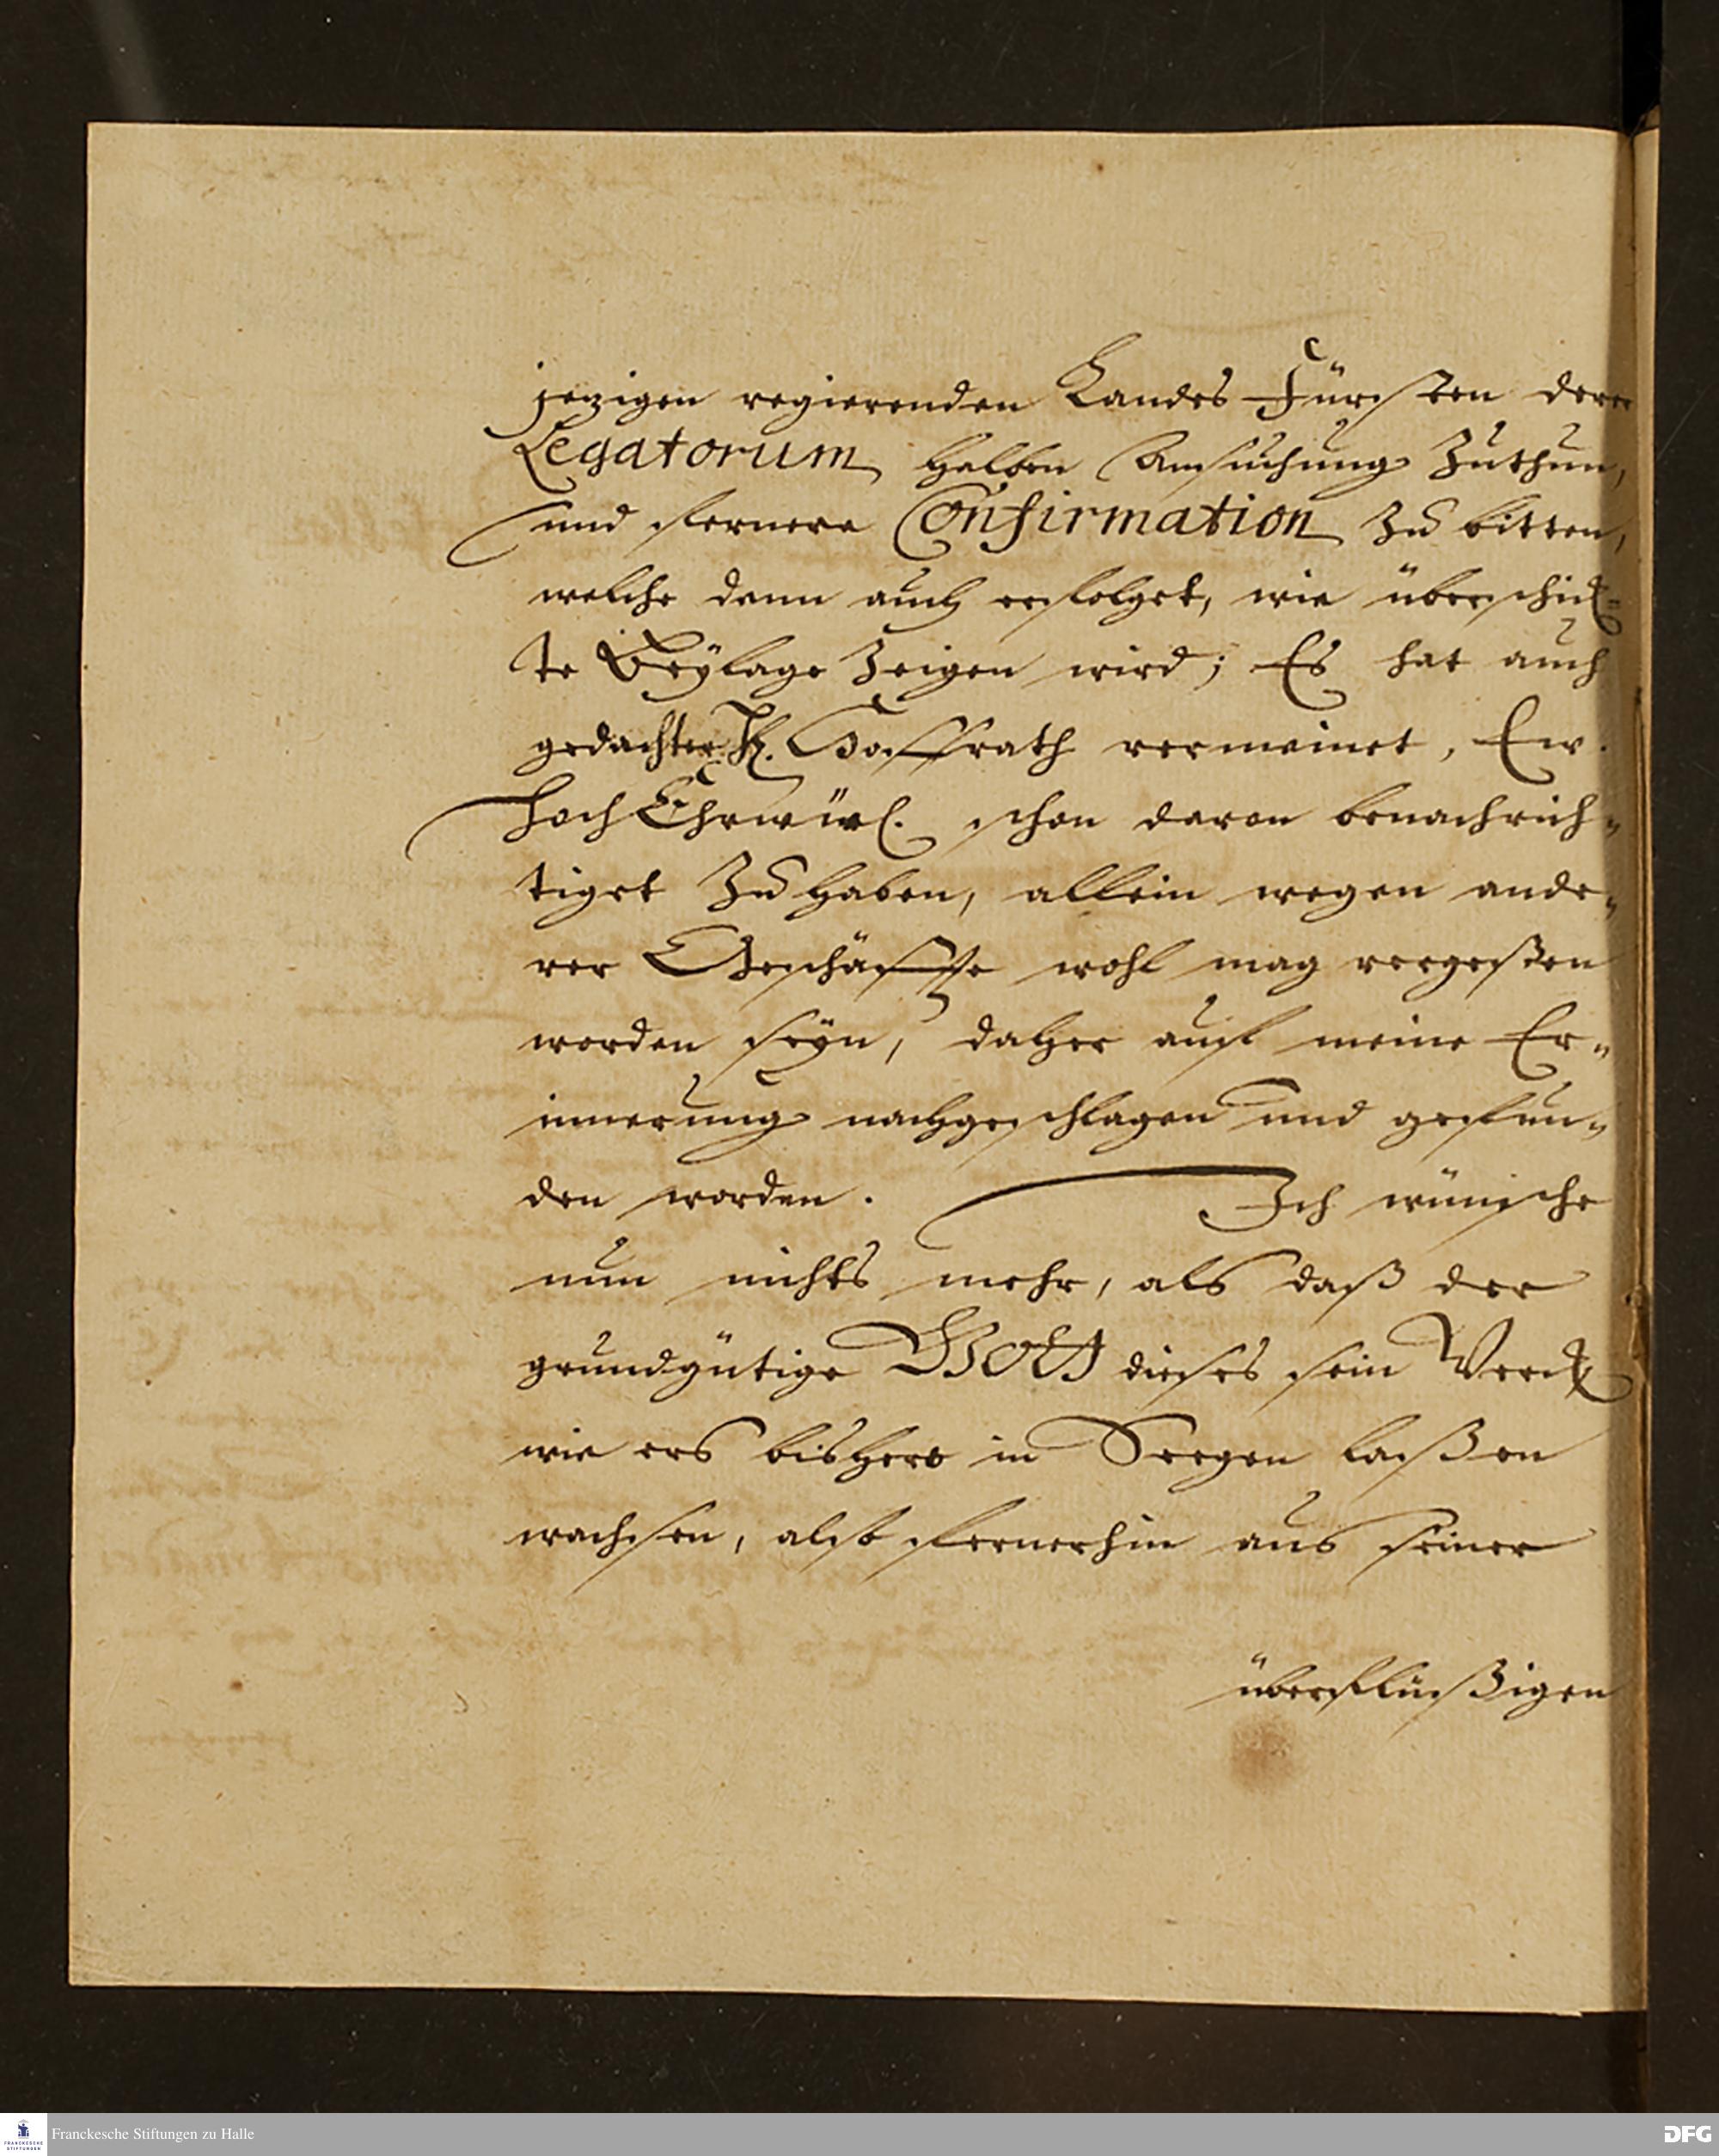 jezigen regierenden Landes-Fürsten derer
Legatorum halben Ansuchung zuthun,
und fernere Confirmation zu bitten,
welche dann auch erfolget, wie überschick-
te Beÿlage zeigen wird; Es hat auch
gedachter H. Hoffrath vermeinet, Ew.
HochEhrwürd. schon davon benachrich-
tiget zu haben, allein wegen ande-
rer Geschäffte wohl mag vergeßen
worden seÿn, daher auf meine Er-
innerung nachgeschlagen und gefun-
den worden. Ich wünsche
nun nichts mehr, als daß der
grundgütige GOtt dieses sein Werck
wie ers bishero in Seegen laßen
wachsen, also fernerhin aus seiner
überflüßigen
Franckesche Stiftungen zu Halle
DFG